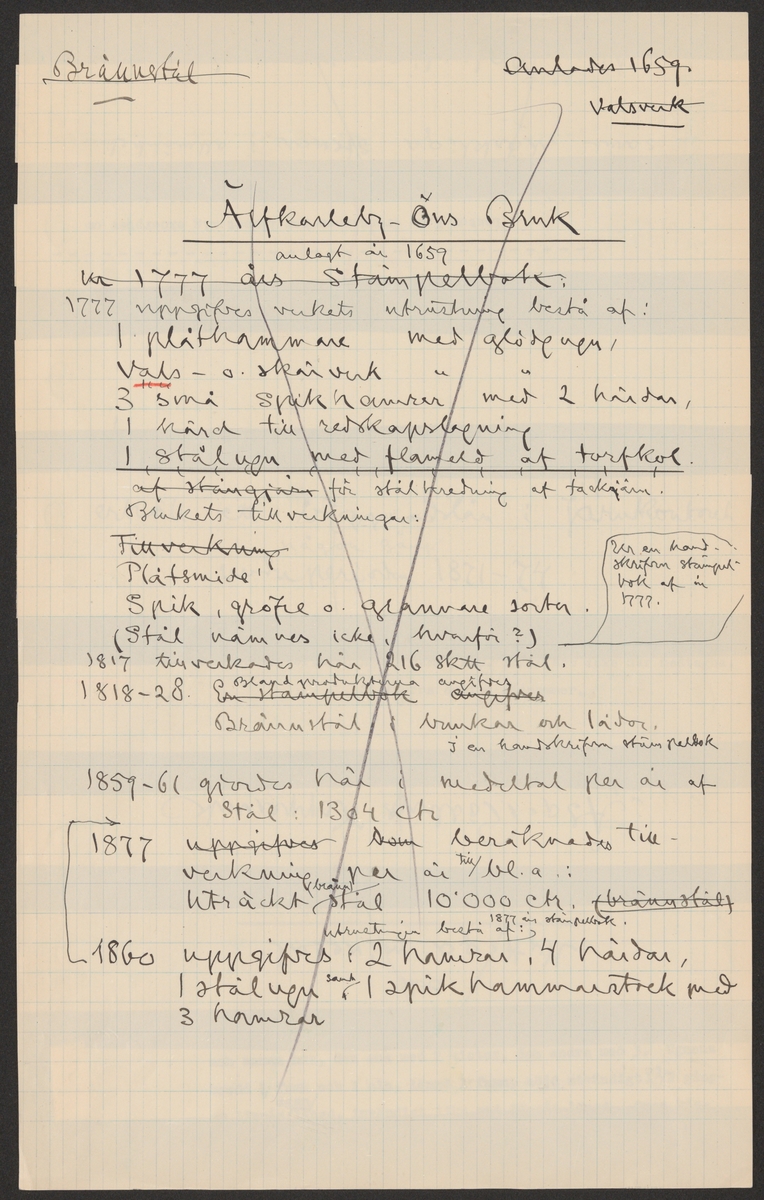 Brännstål
Anlades 1659.
Valsverk
Älfkarleby-Öns Bruk
anlagt år 1659
ur 1777 års Stämpelbok.
1777 uppgifves verkets utrustning bestå af:
1 plåthammare med glödgugn,
Vals- o. skärverk " "
3 små spikhamrar med 2 härdar,
1 härd till redskapslagning
1 stålugn med flameld af torfkol.
af stångjärn för stålberedning af tackjärn.
Brukets tillverkningar:
Tillverkning
Plåtsmide,
Spik, gröfre o. grannare sorter.
(Stål nämnes icke, hvarför?)
Ur en hand-
skrifven stämpel-
bok af år
1777.
1817 tillverkades här 216 sktt stål.
Bland produkterna angifves
1818-28. En stämpelbok angifver
Brännstål i bunkar och lådor.
i en handskrifven stämpelbok
1859-61 gjordes här i medeltal per år af
Stål: 1304 ctr
1877 uppgifves som beräknades till-
verkning per år till bl.a.:
(bränn)
Uträckt stål 10'000 ctr. (brännstål)
1877 års stämpelbok.
utrustningen bestå af:
1860 uppgifves 2 hamrar, 4 härdar,
1 stålugn samt 1 spikhammarstock med
3 hamrar